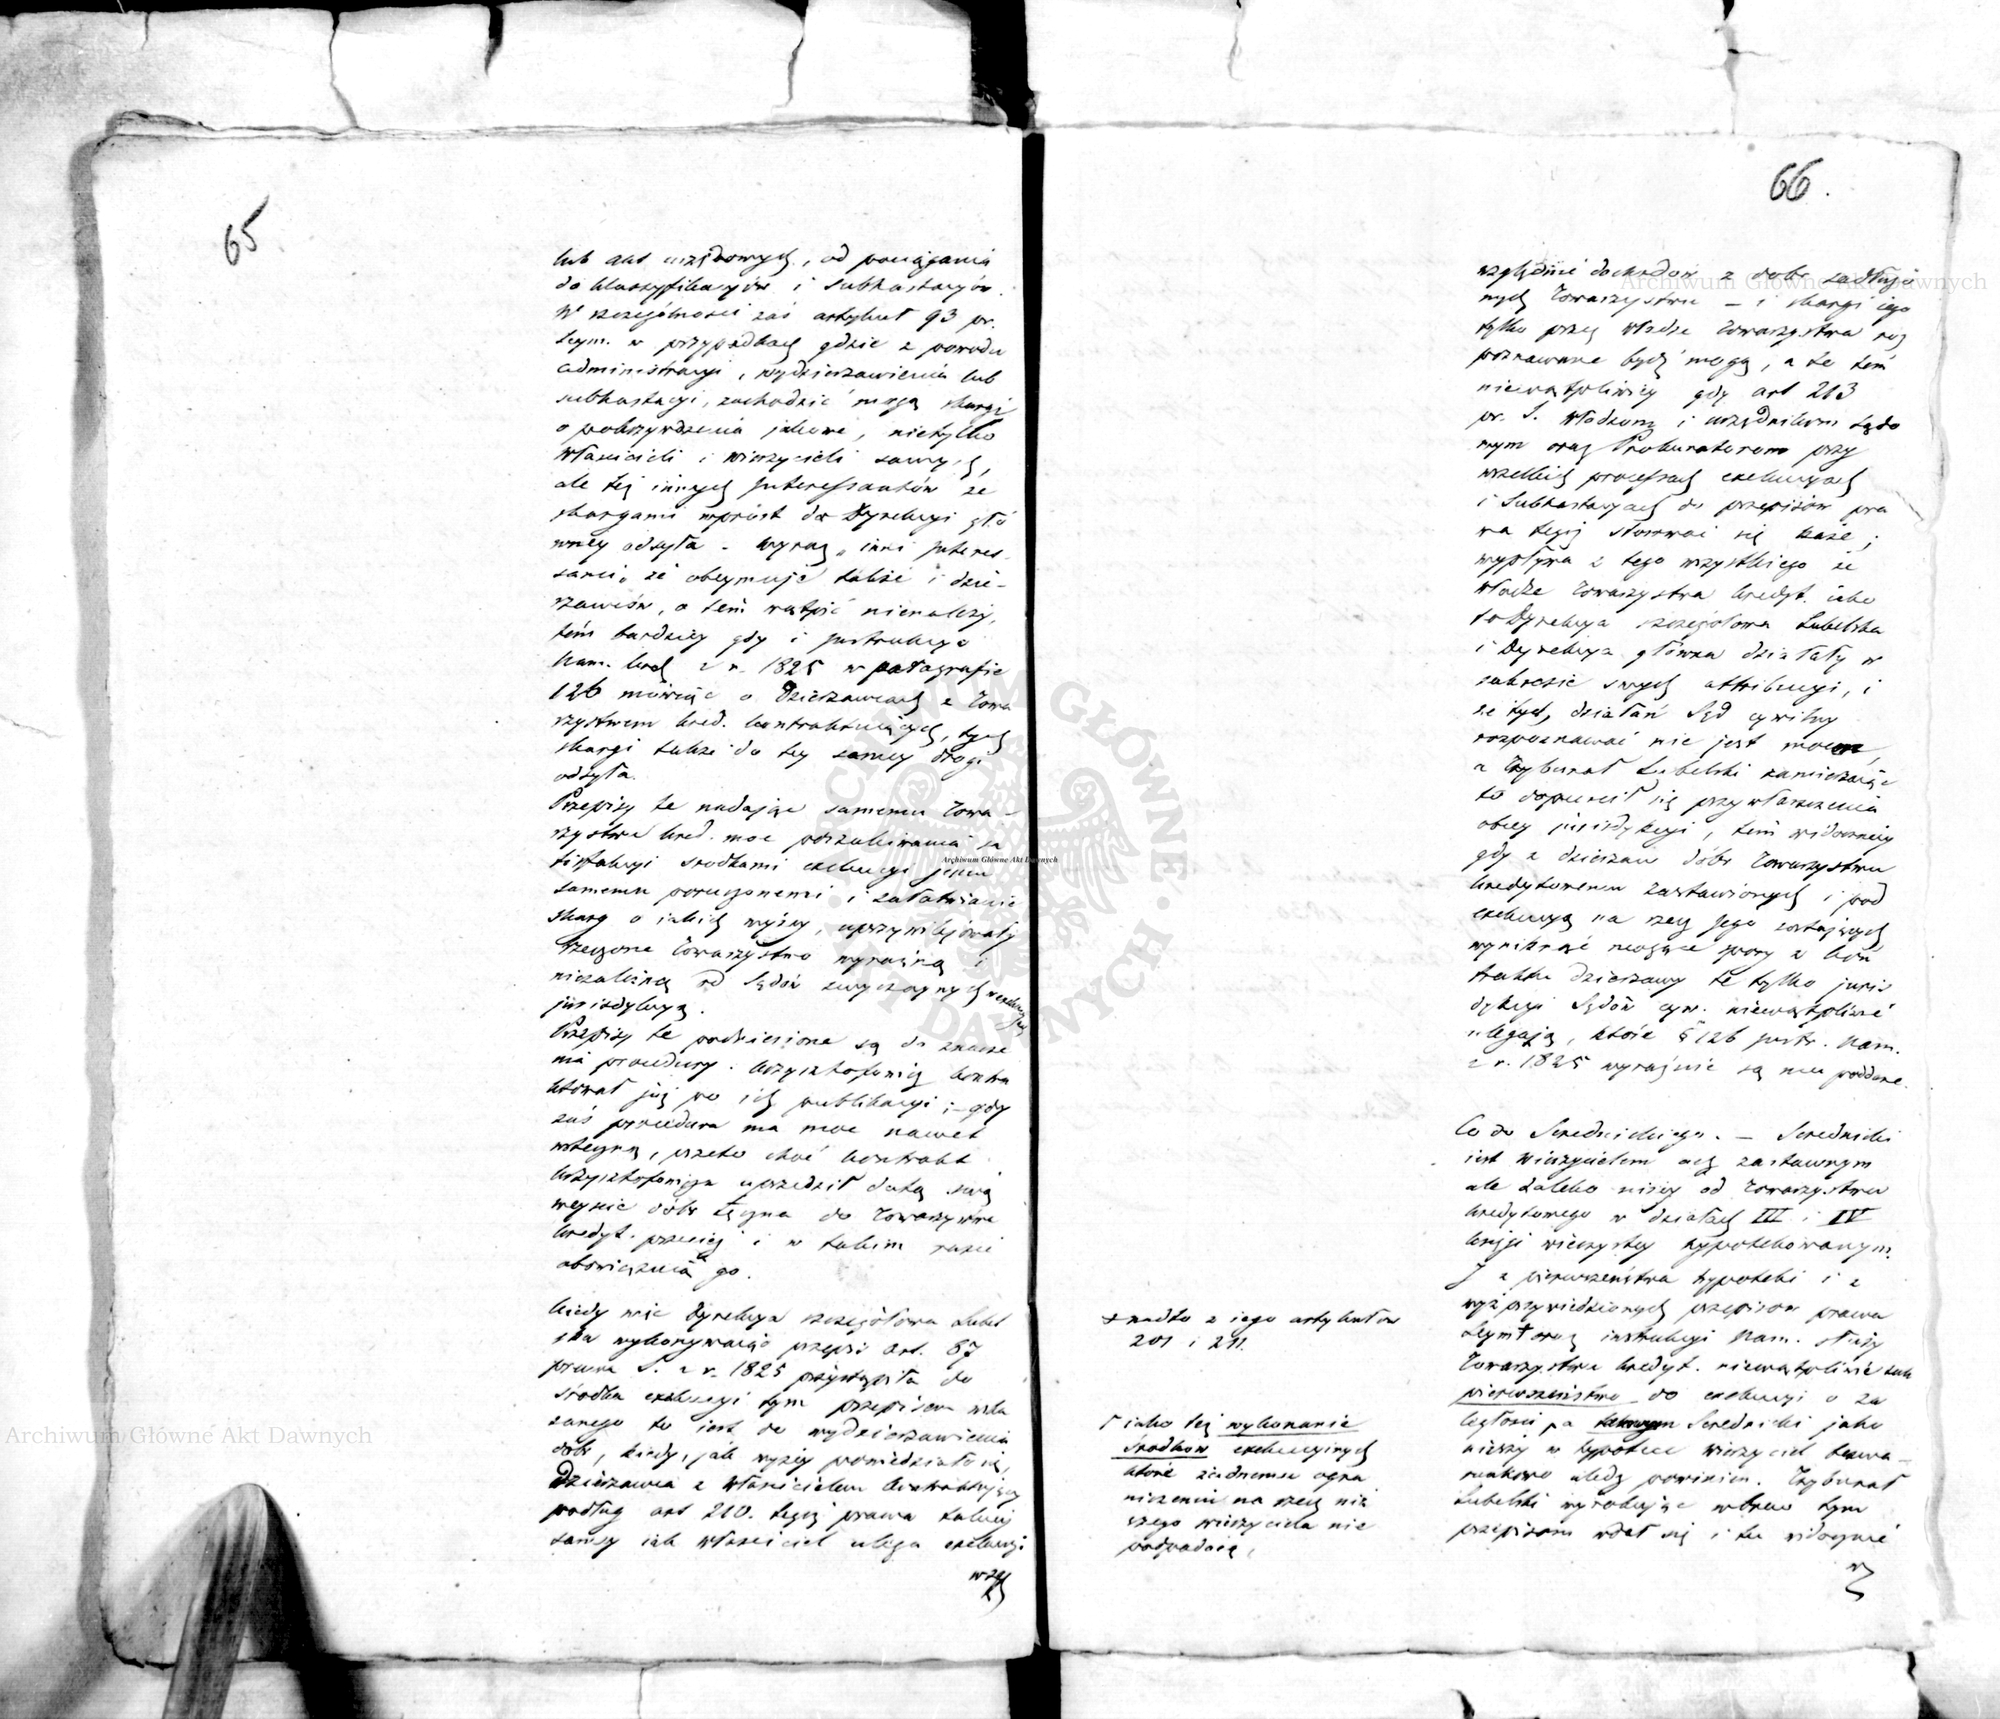 65
lub akt urzędowych, od pociągania
do klassyfikacyów i subhastacyów.
W szczególności zaś artykuł 93 pr.
Seym. w przypadkach gdzie z powodu
administracyi, wydzierzawienia lub
subhastacyi, zachodzić mogą skargi
o pokrzywdzenia jakowe, nietylko
Właścicieli i wierzycieli samych,
ale też innych Interessantów ze
skargami wprost do Dyrekcyi głó
wney odsyła. Wyraz „inni Interes-
sanci" że obeymuje także i dzie-
rzawców, o tem wątpić nienależy,
tém bardziey gdy i Instrukcya
Nam. Król z r. 1825 w paragrafie
126 mówiąc o Dzierzawcach z Towa
rzystwem kred. kontraktujących, tych
skargi także do tey samey drogi
odsyła.
Przepisy te nadając samemu Towa-
rzystwu kred. moc poszukiwania sa
tisfakcyi srodkami exekucyi jemu
samemu poruczonemi i załatwianie
skarg o jakich wyżey, uprzywilejowały
rzeczone Towarzystwo wyraźną i
niezależną od Sądów zwyczaynych w exekucyi
jurisdykcyą.
Przepisy te podniesione są do znacze
nia procedury. Krzysztoforwicz kontra
ktował już po ich publikacyi; – gdy
zaś procedura ma moc nawet
wsteczną, przeto choć kontrakt
uprzedził datą swą
weyście dóbr Łęczna do Towarzystwa
kredyt. przecież i w takim razie
obowiązuią go.
Kiedy więc Dyrekcya szczegółowa Lubel
ska wykonywaiąc przepis art. 87
prawa S. z r. 1825 przystąpiła do
środka exekucyi tym przepisem wska
zanego to iest do wydzierzawienia
dóbr, kiedy, jak wyżey powiedziało się,
Dzierzawca z Właścicielem kontraktujący
podług art 210. tegoż prawa takiey
samey iak Właściciel ulega exekucyi
wzgl
66.
względnie dochodów z dobr zadłużo
nych Towarzystwu – i skargi iego
tylko przez Władze Towarzystwa roz
poznawane bydź mogą, a to tém
niewątpliwiey gdy art 213
pr. S. Władzom i urzędnikom Sądo
wym oraz Prokuratorom przy
wszelkich processach exekucyach
i Subhastacyach do przepisów pra
wa tegoż stosować się każe;
wypływa z tego wszystkiego że
Władze Towarzystwa kredyt. iako
to Dyrekcya szczegółowa Lubelska
i Dyrekcya główna działały w
zakresie swych attribucyi, i
że tych, działań Sąd cywilny
rozpoznawać nie jest mocen,
a Trybunał Lubelski zamieszaiąc
to dopuścił się przywłaszczenia
obcey jurisdykcyi, tém widoczniey
gdy z dzierzaw dóbr Towarzystwu
kredytowemu zastawionych i pod
exekucyą na rzecz jego zostających
wyniknąć mogące spory z kon
traktu dzierzawy te tylko juris
dykcyi Sądów cyw. niewątpliwie
ulegają, które § 126 Instr. Nam.
z r. 1825 wyraźnie są mu poddane.
Co do Serednickiego. – Serednicki
iest Wierzycielem acz zastawnym
ale daleko niżey od Towarzystwa
kredytowego w działach III i IV
księgi wieczystey hypotekowanym.
I z pierwszeństwa hypoteki i z
wyż przywiedzionych przepisów prawa
Seym + oraz instrukcyi Nam. służy
Towarzystwu kredyt. niewątpliwie tak
pierwszeństwo do exekucyi o za
ległości, a Serednicki jako
niższy w hypotece wierzyciel bezwa-
runkowo uledz powinien. Trybunał
Lubelski wyrokując wbrew tym
przepisom wdał się i tu widocznie
w
+ nadto z iego artykułów
201 i 211.
Γ iako też wykonanie
środków exekucyinych
które żadnemu ogra
niczeniu na rzecz niż
szego wierzyciela nie
podpadaią,
Archiwum Główne Akt Dawnych
Archiwum Główne Akt Dawnych
Archiwum Główne Akt Dawnych
ARCHIWUM GŁÓWNE • AKT DAWNYCH •